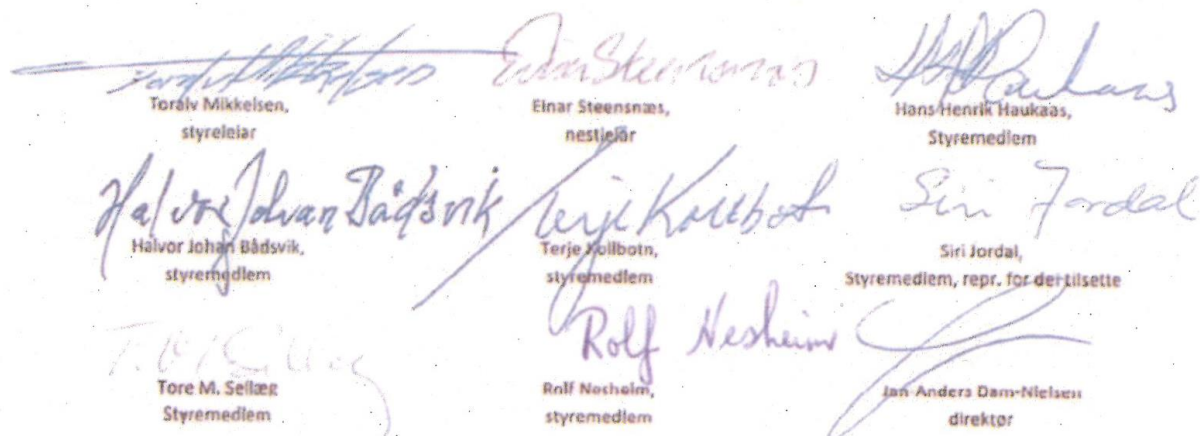 Toralv Mikkelsen,
styreleiar
Einar Steensnæs
Einar Steensnæs,
nestleiar
HH Haukaas
Hans Henrik Haukaas,
Styremedlem
Halvor Johan Bådsvik
Halvor Johan Bådsvik,
styremedlem
Terje Kollbotn
Terje Kollbotn,
styremedlem
Siri Jordal
Siri Jordal,
Styremedlem, repr. for dei tilsette
Tore M. Sellæg
Styremedlem
Rolf Nesheim
Rolf Nesheim,
styremedlem
Jan Anders Dam-Nielsen
direktør